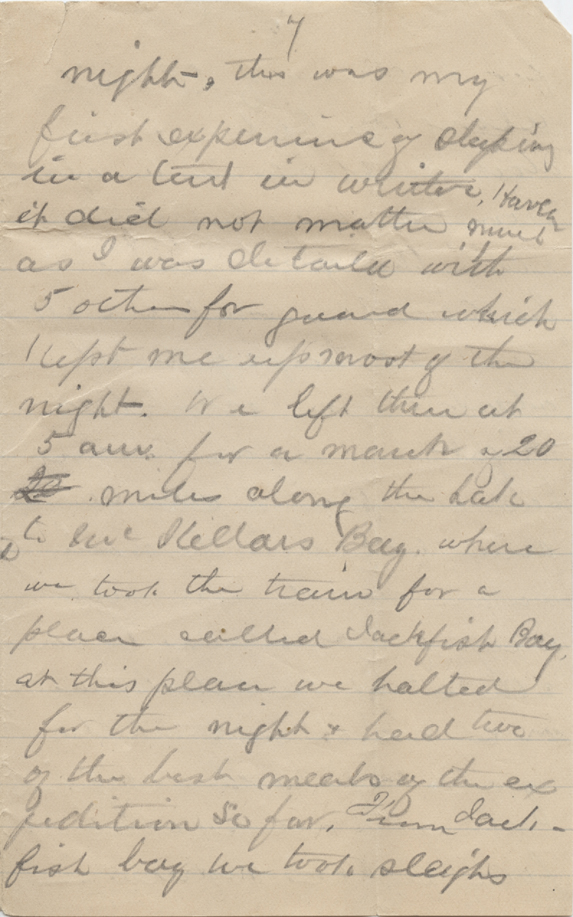 7
night, this was my
first experience of sleeping
in a tent in winter, However
it did not matter much
as I was detailed with
5 other for guard which
kept me up most of the
night. We left then at
5 am. for a march of 20
20 miles along the Lake
to McKellars Bay. where
we took the train for a
place called Jackfish Bay,
at this place we halted
for the night & had two
of the best meals of the ex
pedition so far. From Jack-
fish bay we took sleighs